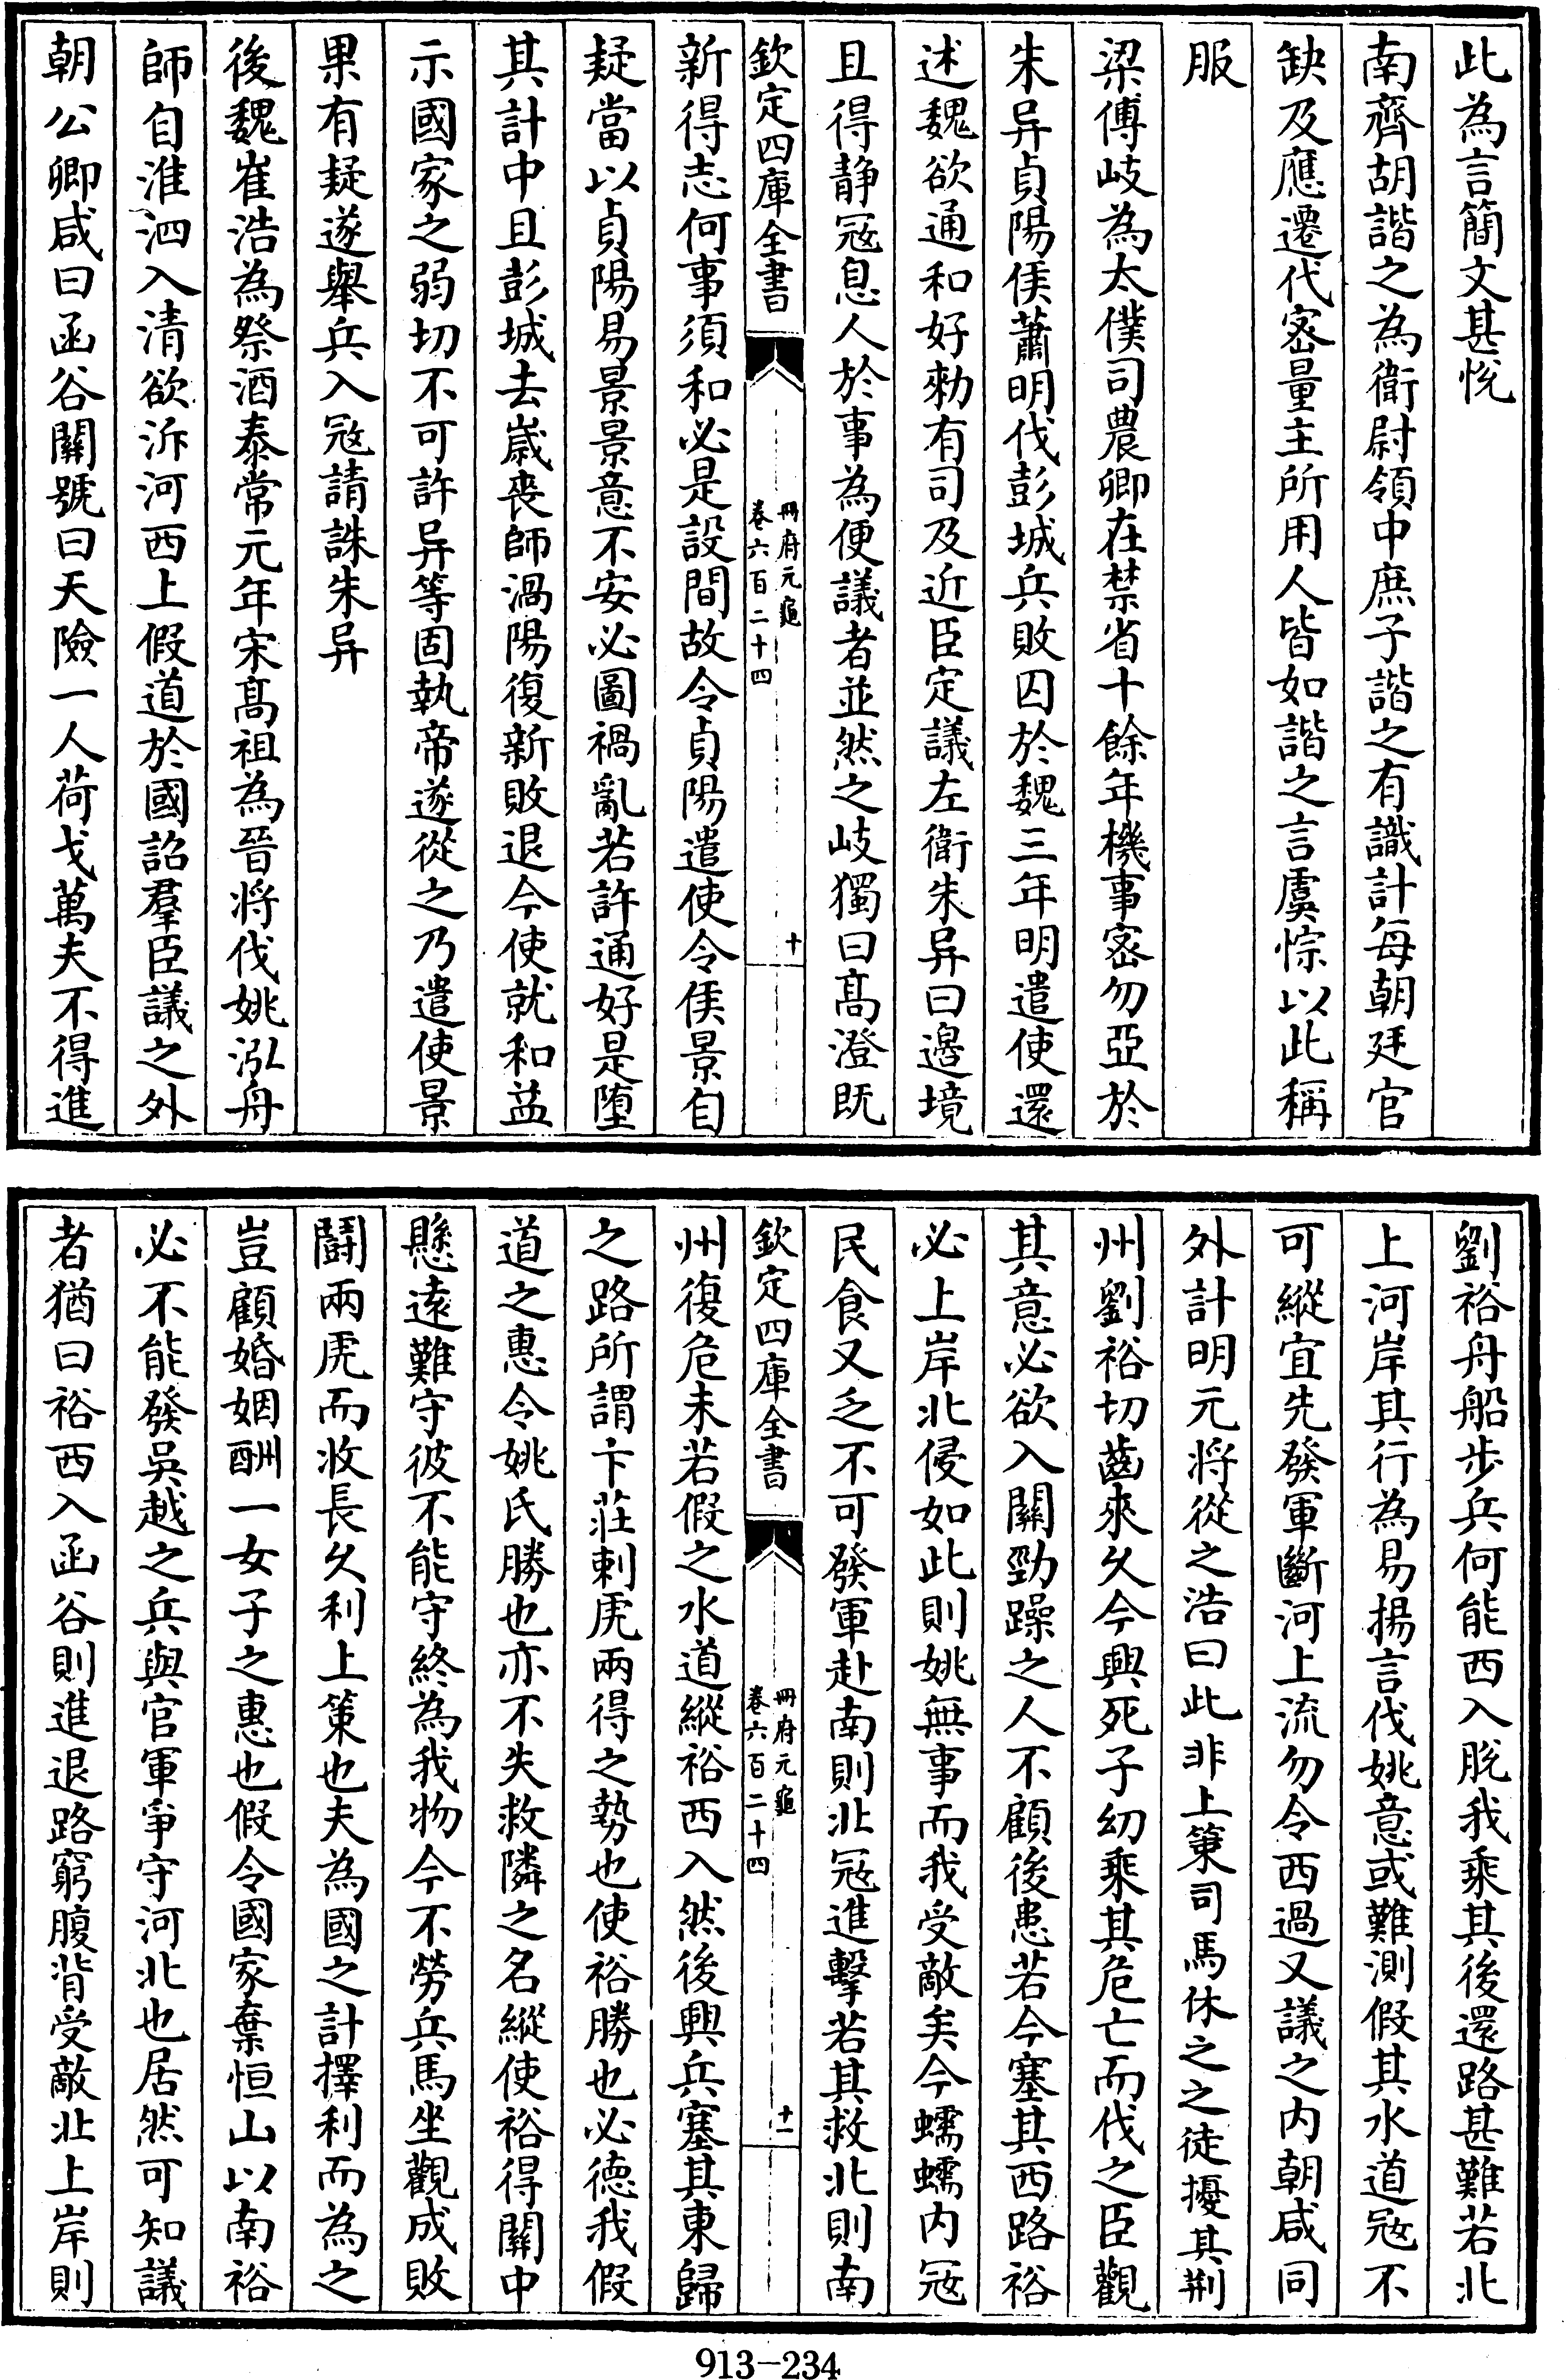 此為言簡文甚悅
南齊胡諧之為衛尉領中庶子諧之有識計每朝廷官
缺及應遷代宻量主所用人皆如諧之言虞悰以此稱
服
梁傅岐為太僕司農卿在禁省十餘年機事宻勿亞於
朱异貞陽侯蕭明伐彭城兵敗囚於魏三年明遣使還
述魏欲通和好勑有司及近臣定議左衛朱异曰邉境
且得静冦息人於事為便議者並然之岐獨曰髙澄既
欽定四庫全書
冊府元龜
卷六百二十四
十
新得志何事須和必是設間故令貞陽遣使令侯景自
疑當以貞陽易景景意不安必圖禍亂若許通好是墮
其計中且彭城去歲喪師渦陽復新敗退今使就和益
示國家之弱切不可許异等固執帝遂從之乃遣使景
果有疑遂舉兵入冦請誅朱异
後魏崔浩為祭酒泰常元年宋髙祖為晉將伐姚泓舟
師自淮泗入清欲泝河西上假道於國詔羣臣議之外
朝公卿咸曰函谷關號曰天險一人荷戈萬夫不得進
劉裕舟船步兵何能西入脫我乘其後還路甚難若北
上河岸其行為易揚言伐姚意或難測假其水道冦不
可縱宜先發軍斷河上流勿令西過又議之内朝咸同
外計明元將從之浩曰此非上䇿司馬休之之徒擾其荆
州劉裕切齒來久今興死子幼乘其危亡而伐之臣觀
其意必欲入關勁躁之人不顧後患若今塞其西路裕
必上岸北侵如此則姚無事而我受敵矣今蠕蠕内冦
民食又乏不可發軍赴南則北冦進擊若其救北則南
欽定四庫全書
冊府元龜
卷六百二十四
十一
州復危未若假之水道縱裕西入然後興兵塞其東歸
之路所謂卞莊刺虎兩得之勢也使裕勝也必德我假
道之惠令姚氏勝也亦不失救隣之名縱使裕得關中
懸逺難守彼不能守終為我物今不勞兵馬坐觀成敗
鬭兩虎而收長久利上策也夫為國之計擇利而為之
豈顧婚姻酬一女子之惠也假令國家棄恒山以南裕
必不能發吳越之兵與官軍爭守河北也居然可知議
者猶曰裕西入函谷則進退路窮腹背受敵北上岸則
913-234